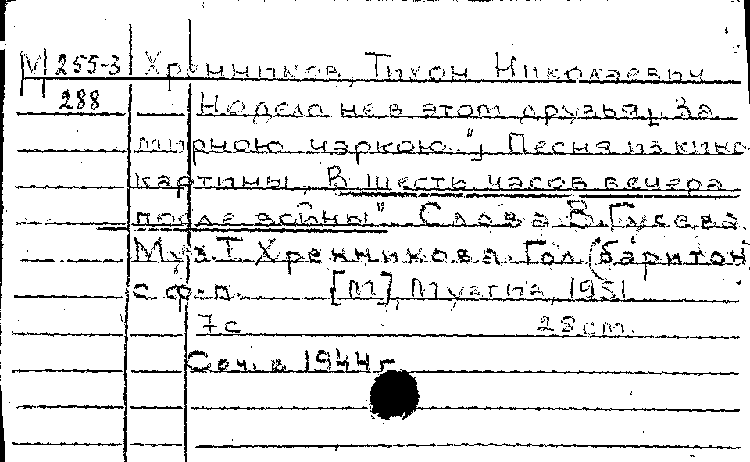 М 255-3 Хренников, Тихон Николаевич
288 Но дело не в этом друзья, „За
мирною чаркою."; Песня из кино
картины „В шесть часов вечера
после войны" Слова В. Гусева.
Муз. Т. Хренникова. Гол. (баритон)
с ф-п. [М], Музгиз, 1951
7 с 28 cm.
Соч. в 1944 г